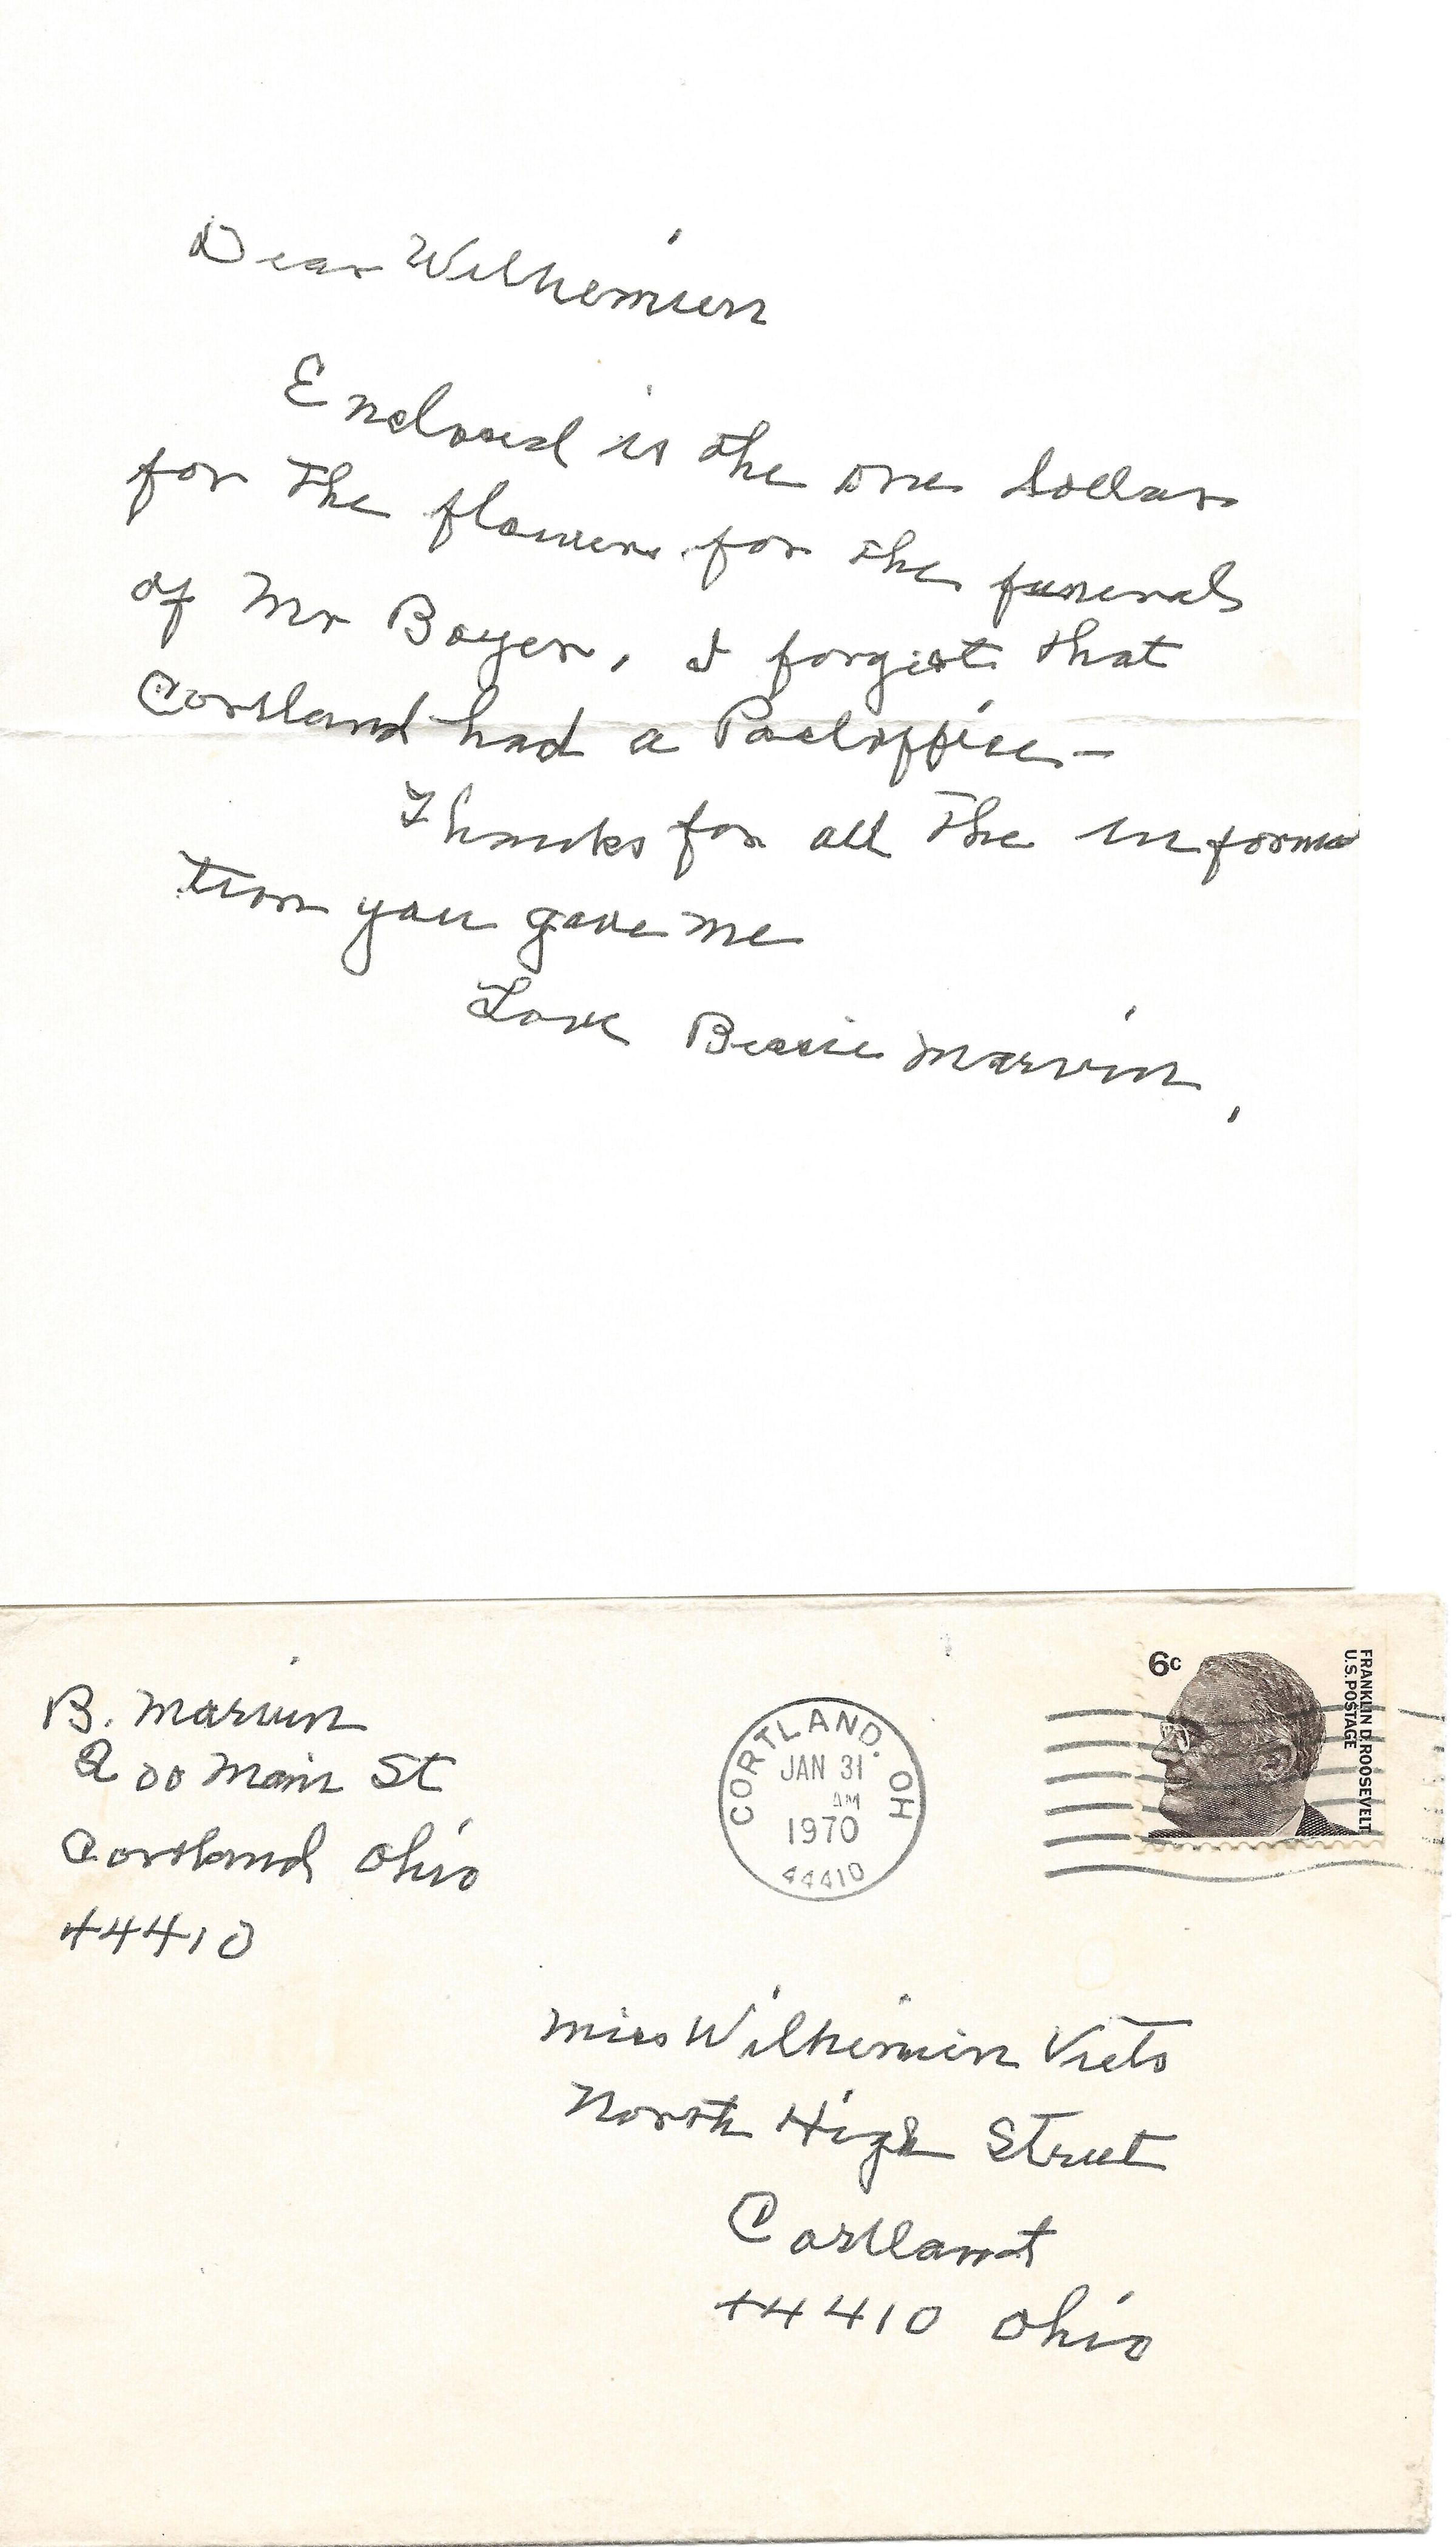 Dear Wilhemien
Enclosed is the one dollar
for the flowers for the funeral
of Mr Boyer, I forgot that
Cortland had a Postoffice -
Thanks for all the informa
tion you gave me
Love Bessie Marvin,
B. Marvin
200 Main St
Cortland Ohio
44410
CORTLAND. OH
JAN 31
AM
1970
44410
6c
FRANKLIN D. ROOSEVELT
U.S. POSTAGE
Miss Wilhemien Viets
North High Street
Cortland
44410 Ohio